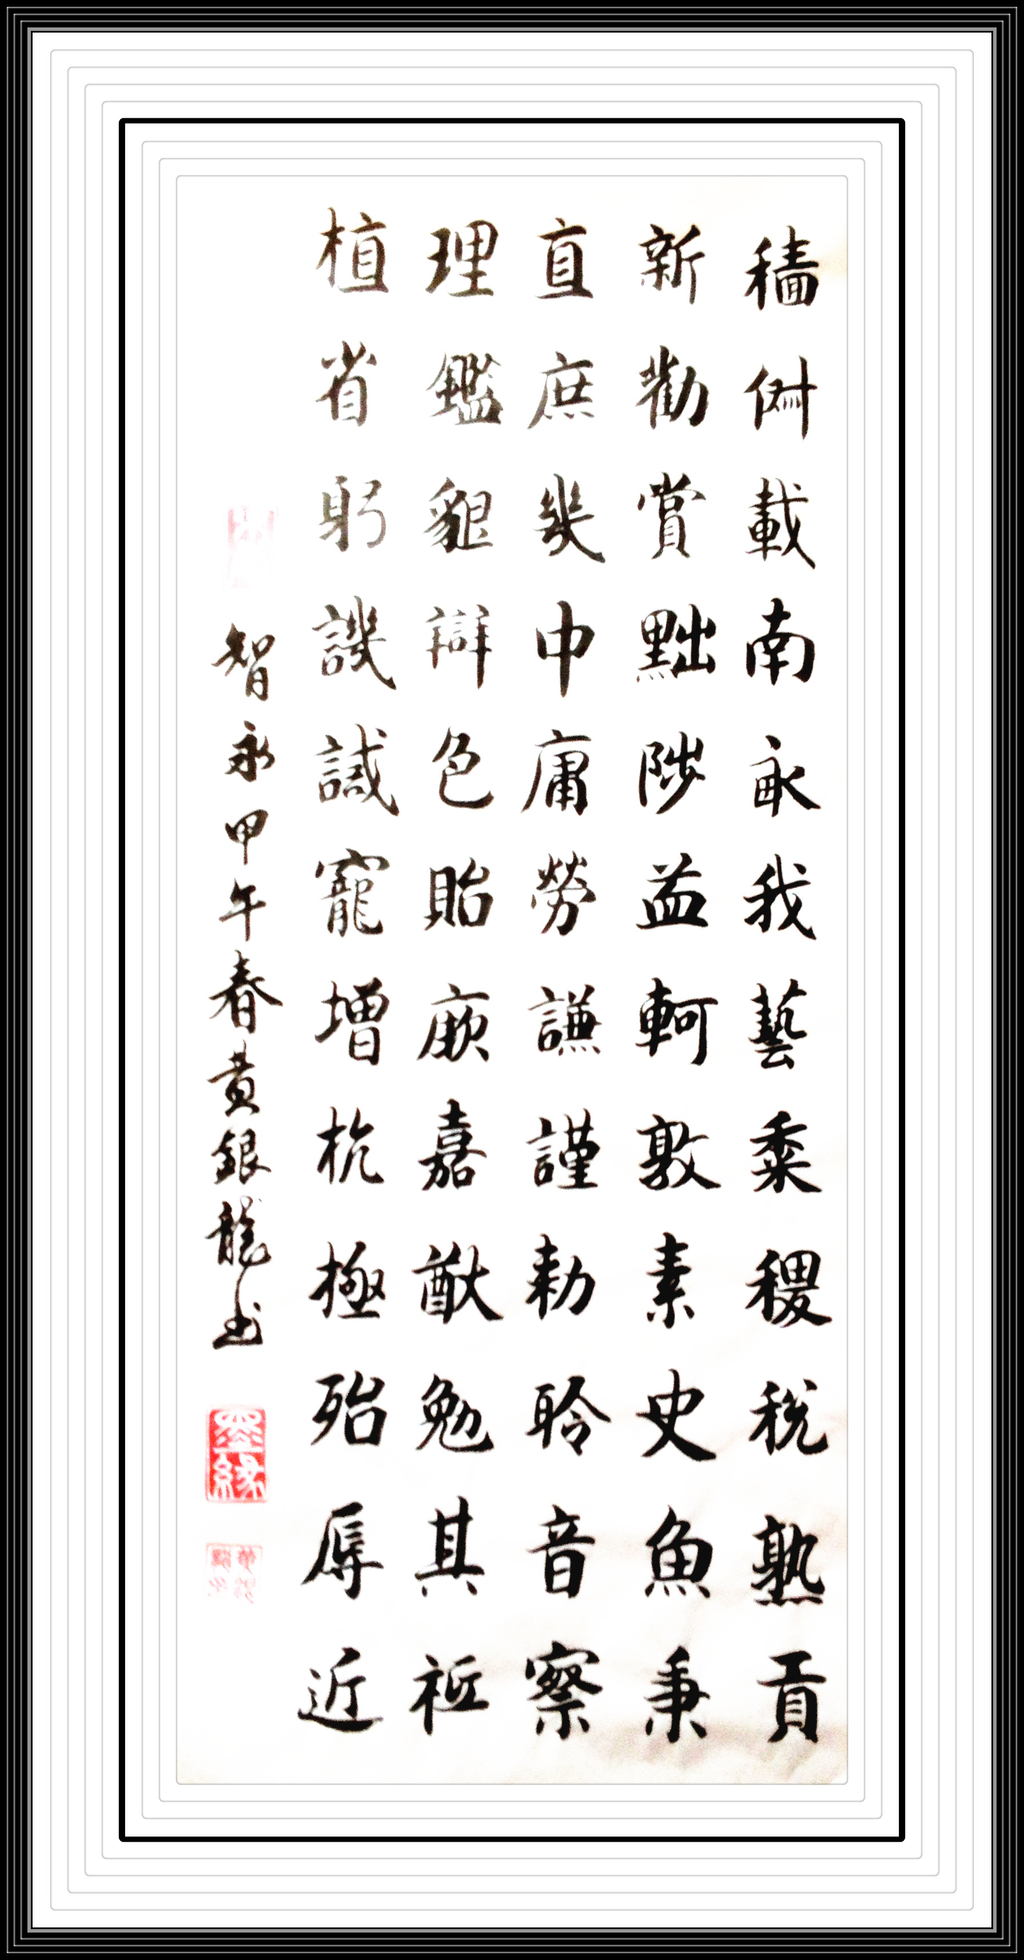 穑俶載南畝我藝黍稷稅熟貢
新勸賞黜陟孟軻敦素史魚秉
直庶幾中庸勞謙謹勑聆音察
理鑑貌辯色貽厥嘉猷勉其祗
植省躬譏誡寵增抗極殆辱近
智永甲午春黄銀龍书
墨緣